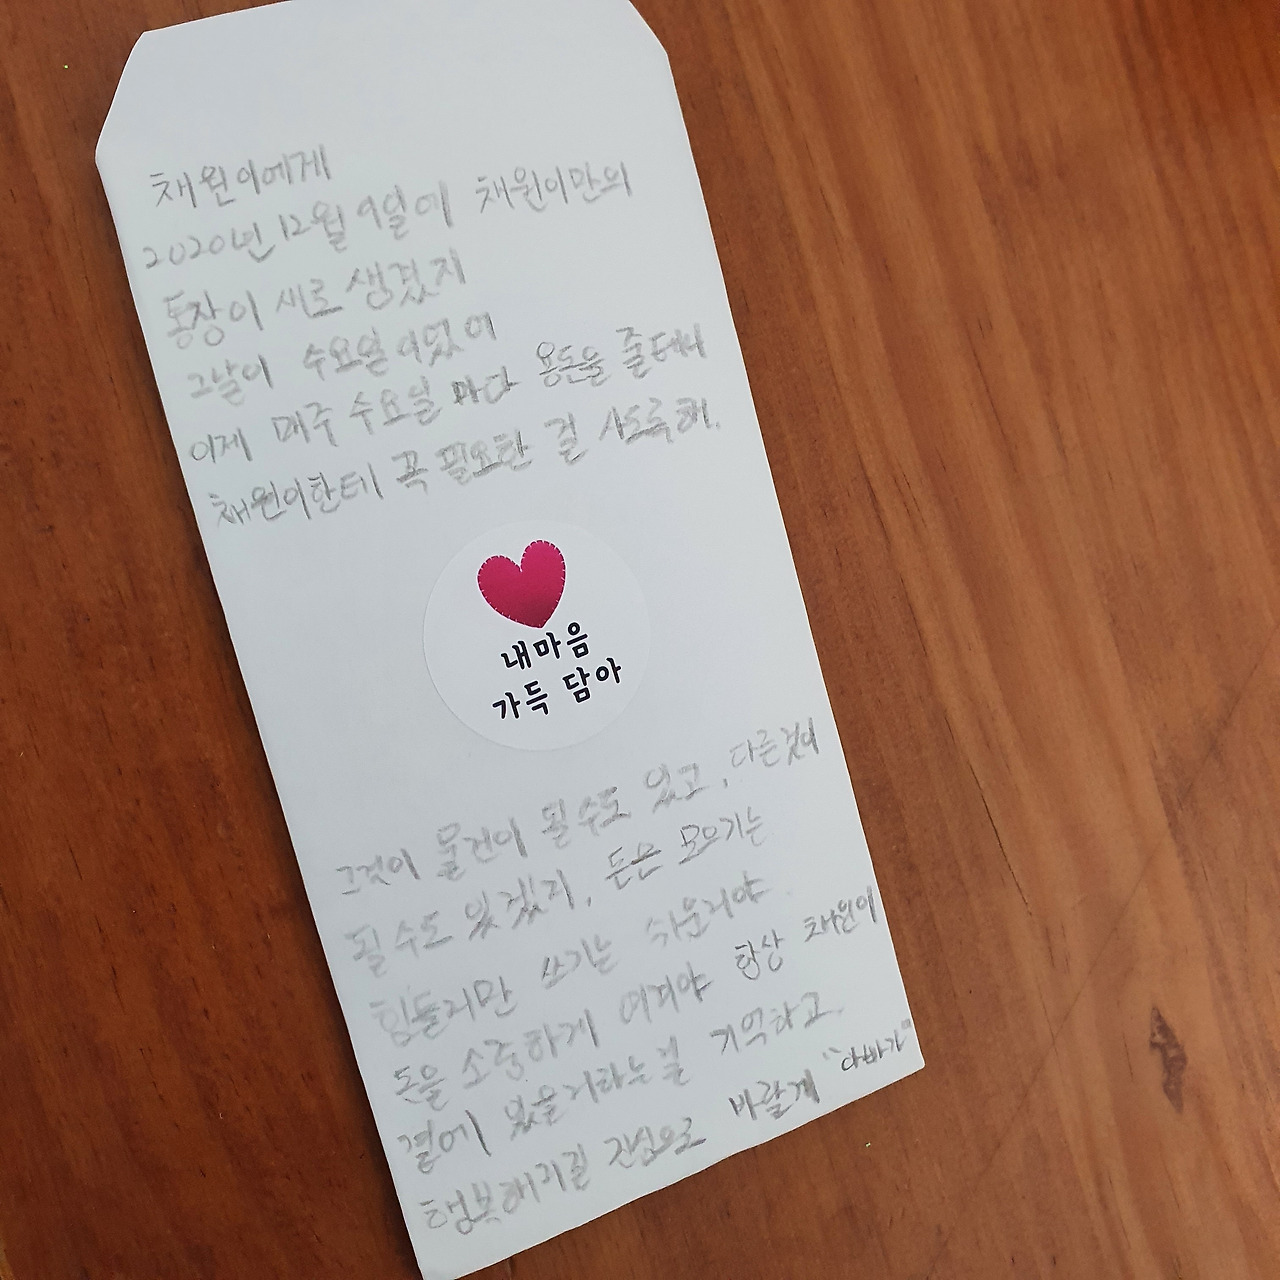 채원이에게
2020년 12월 9일에 채원이만의
통장이 새로 생겼지
그날이 수요일이었어
이제 매주 수요일 마다 용돈을 줄테니
채원이한테 꼭 필요한 걸 사도록해.
내마음
가득 담아
그것이 물건이 될수도 있고, 다른것이
될 수도 있겠지, 돈은 모으기는
힘들지만 쓰기는 쉬운거야.
돈을 소중하게 여겨야 항상 채원이
곁에 있을거라는걸 기억하고.
행복해지길 진심으로 바랄게 "아빠가"